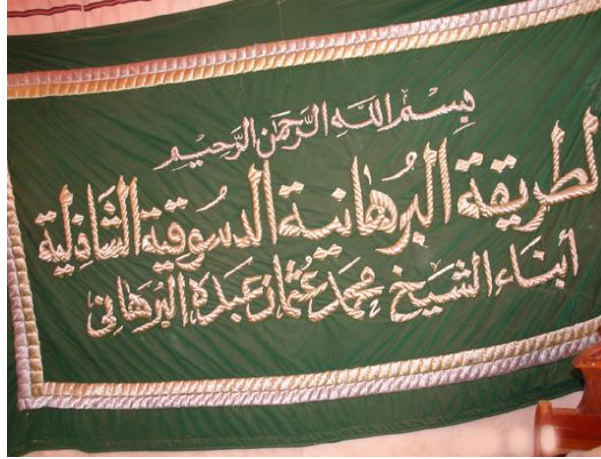 بِسْمِ اللَّهِ الرَّحْمَنِ الرَّحِيمِ
لطريقة البُرهانية الدسُوقية الشاذلية
أبناء الشيخ محمد عُثمان عبدُه البُرهاني